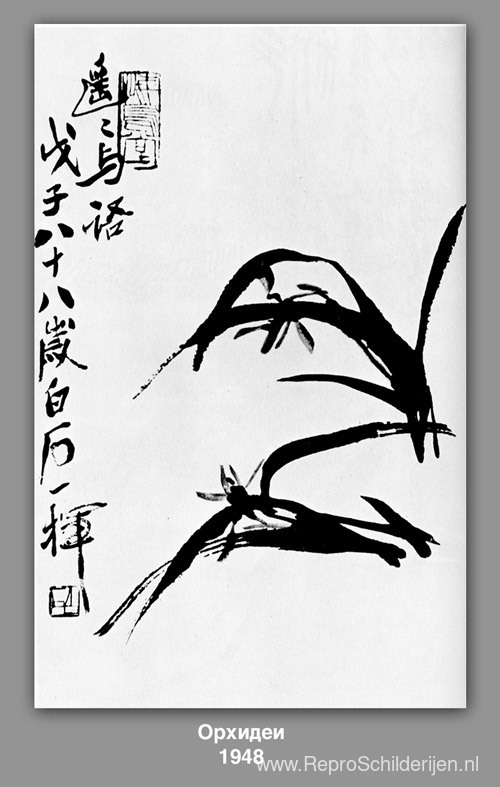 遥々与
戊子八十八歲白石一揮
Орхидеи
1948
www.ReproSchilderijen.nl